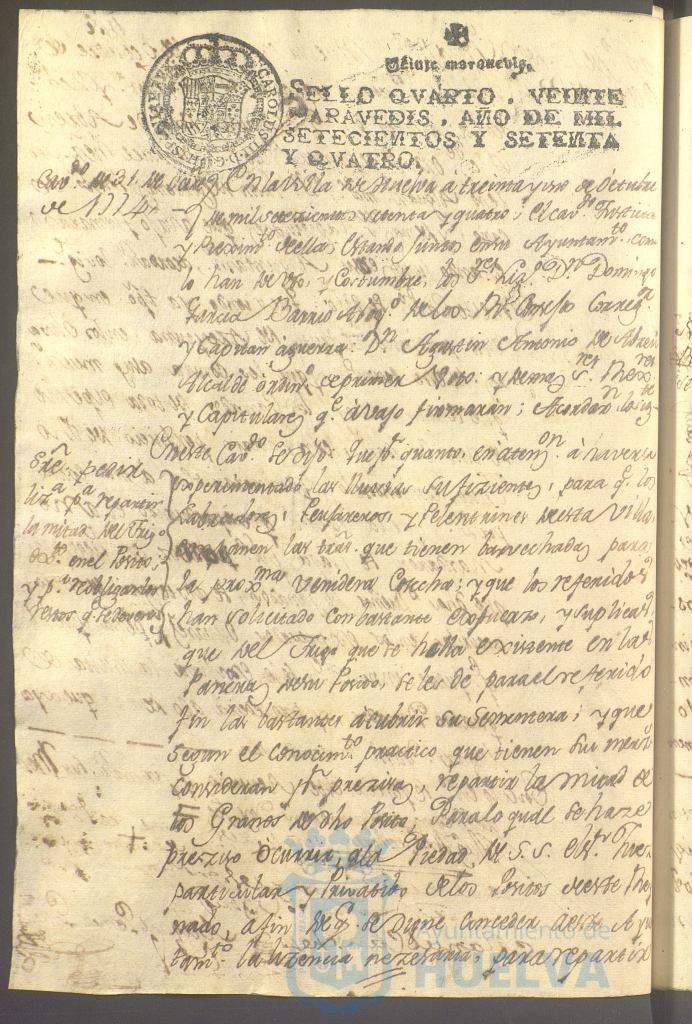 Veinte maravedis.
SELLO QVARTO, VEINTE
MARAVEDIS, AÑO DE MIL
SETECIENTOS Y SETENTA
Y QVATRO.
CAROLUS III D. G. HISP
Cav.do de 31. de
de 1774
En la Villa de Huelva a treinta y uno de Octubre
de mil setezientos setenta y quatro; el cav.do Justicia
y Reximto de ella, estando juntos en su Ayuntam.to como
lo han de uso, y Costumbre, los S.res Liz.do Dn Domingo
Garcia Barrio Abog.do de los Rs. Consejos Correg.or
y Capitan aguerra: Dn. Agustin Antonio de
Alcalde ordin.o de primer Voto: y demas S.res
y Capitulares q.e abajo firmaran; Acordaron lo sig.te
Sre. pedir
liz.a p.a repartir
la mitad del Trigo
en el Posito;
y p.a
restos q.e se deven
En este Cav.do se dijo: Que por quanto, en aten.on à haverse
experimentado las lluvias sufizientes, para q.e los
Labradores, Pensareros, y Pelentrines de esta Villa,
las trãs. que tienen barvechadas para
la prox.ma venidera Cosecha; y que los referidos
han solicitado con bastante esfuerzo, y suplicad
que del Trigo que se halla existente en las
Paneras de su Posito, se les dè para el referido
fin las bastantes a cubrir su sementera; y que
segun el conocim.to practico que tienen sus mrds
consideran ser preziso, repartir la mitad de
los Granos de dho Posito; Para lo qual se haze
preziso ocurrir, ala Piedad de S. S. el S.r Juez
particular y Privatibo de los Positos de este Rey
nado, a fin de q.e se digne conceder a este Ayun
tam.to la lizencia nezesaria, para repartir
Ayuntamiento de
HUELVA